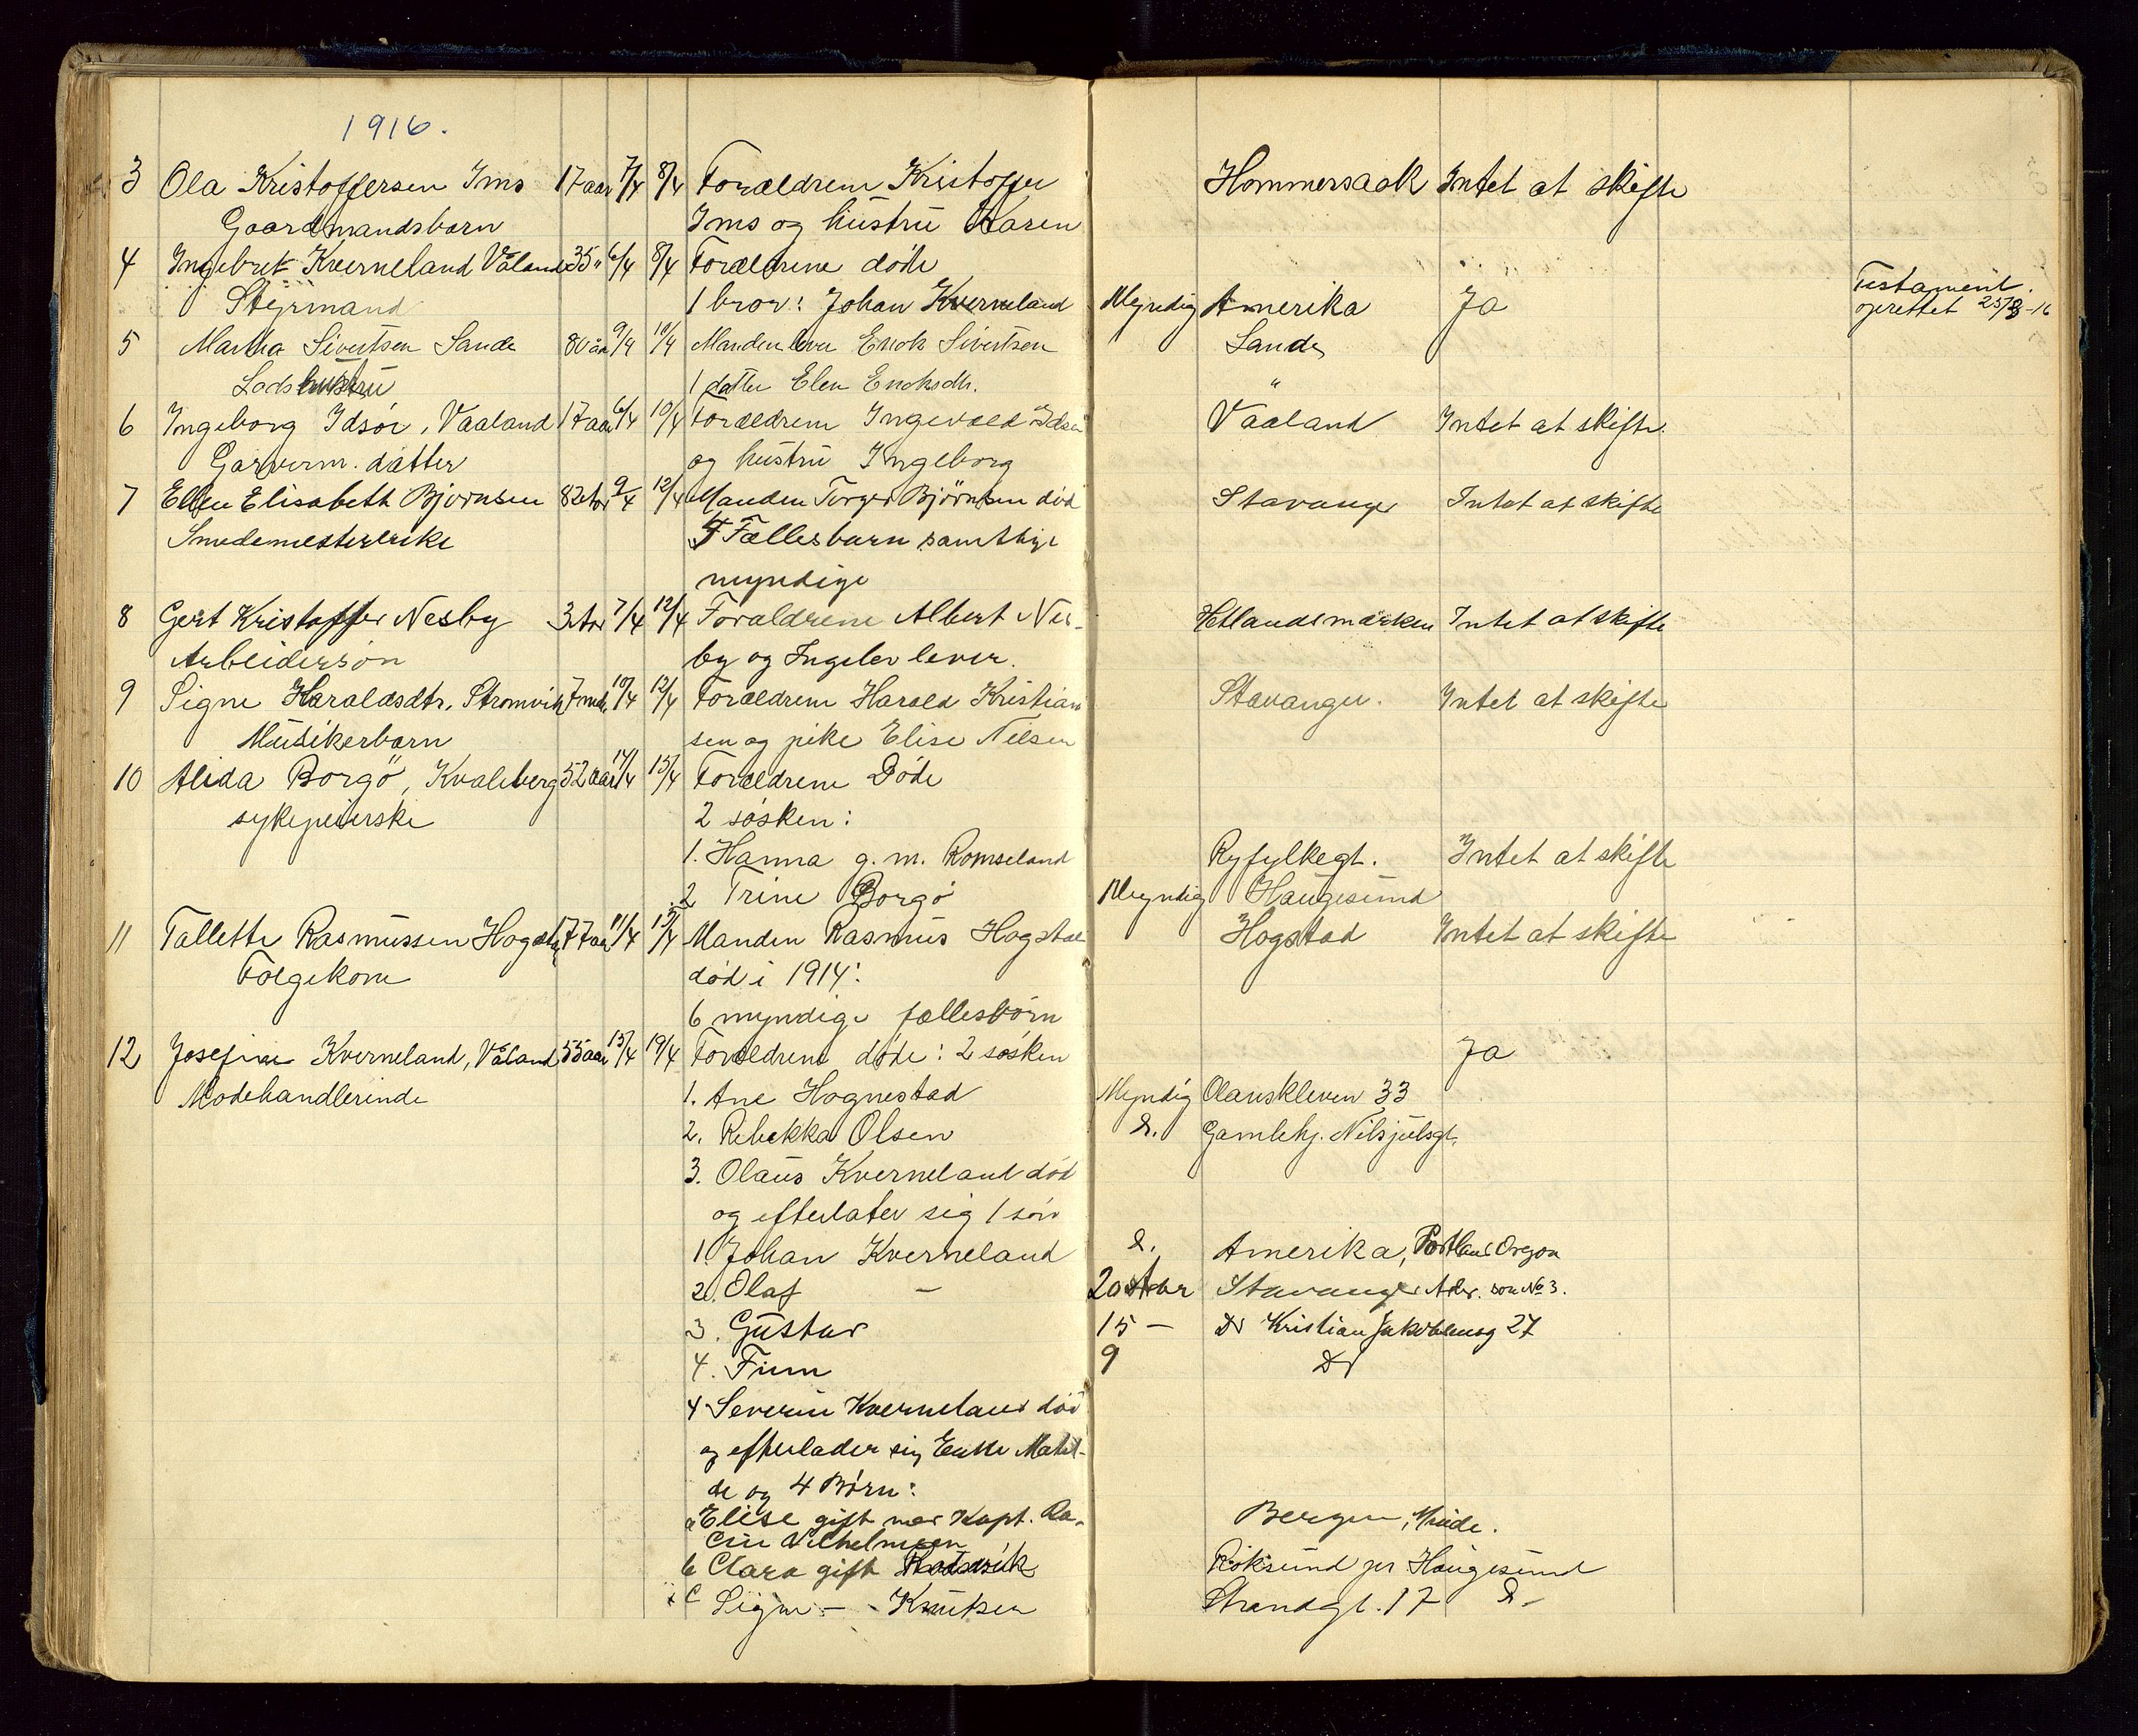 1916.
3 Ola Kristoffersen Ims 17 aar 7/4 8/4 Forældrene Kristoffer Hommersaak Intet at skifte
Gaardmandsbarn Ims og hustru Karen
4 Ingebret Kverneland Våland 35 " 6/4 8/4 Forældrene døde
Testament.
Styrmand 1 bror: Johan Kverneland Myndig Amerika Ja oprettet 25/8-16
5 Martha Sivertsen Sande 80 år 9/4 10/4 Manden lever Enok Sivertsen Sande
Lods hustru 1 datter Elen Enoksdtr. "
6 Ingeborg Idsøe, Vaaland 17 aar 6/4 10/4 Forældrene Ingevald Idsøe Vaaland Intet at skifte.
Garverm. datter og hustru Ingeborg
7 Ellen Elisabeth Bjørnsen 82 Aar 9/4 12/4 Manden Torger Bjørnsen død Stavanger Intet at skifte
Smedemesterenke Fællesbarn samtlige
myndige
8 Gert Kristoffer Nesby 3 Aar 7/4 12/4 Forældrene Albert Nes- Hetlandsmarken Intet at skifte
Arbeidersøn by og Ingelev lever.
9 Signe Haraldsdtr. Strømvik 7 mdr. 10/4 12/4 Forældrene Harald Kristian Stavanger. Intet at skifte
Musikerbarn sen og pike Elise Nilsen
10 Alida Borgö, Kvaleberg 52 aar 14/4 15/4 Forældrene Døde
sykepleierske 2 søsken:
1. Hanna g. m. Romseland Ryfylkegt. Intet at skifte
2 Trine Borgö Myndig Haugesund
11 Tallette Rasmussen Hogstad 77 aar 11/4 15/4 Manden Rasmus Hogstad Hogstad Intet at skifte
Følgekone død i 1914:
6 myndige fællesbörn
12 Josefine Kverneland, Våland 55 aar 15/4 19/4 Forældrene døde: 2 søsken Ja
Modehandlerinde 1. Ane Hognestad Myndig Olauskleven 33
2. Rebekka Olsen D. Gamlehj. Nilsjulsgt.
3. Olaus Kverneland död
og efterlater sig 1 sön
1. Johan Kverneland D. Amerika, Portland Oregon
2. Olaf — 20 Aar Stavanger Adr. som No 3.
3. Gustav 15 — Do Kristian Jakobsensg 27
4. Finn 9 Do
4 Severin Kverneland död
og efterlader sig Enke Mathil-
de og 4 Børn:
a Elise gift med Kapt. Ra- Bergen, Minde.
Vilhelmsen
b Clara gift Röksund pr Haugesund
c Signe — Knutsen Strandgt. 17 D-